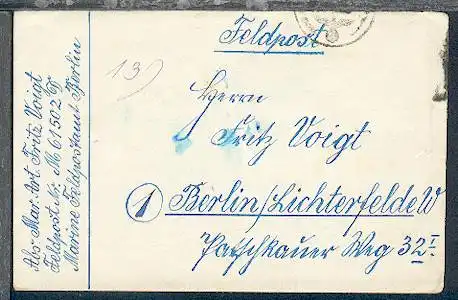 Feldpost
13)
Herrn
Fritz Voigt
1 Berlin/Lichterfelde W
Patschkauer Weg 32 I.
Abs: Mar. Art. Fritz Voigt
Feldpost Nr: M 61502
Marine Feldpostamt Berlin